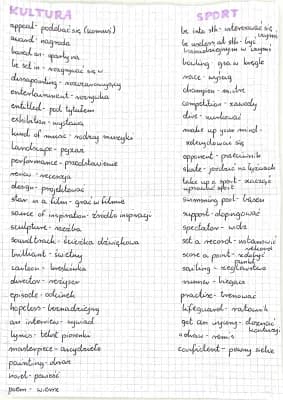 KULTURA
appeal - podobać się (komuś)
award - nagroda
based on - oparty na
be set in - rozgrywać się w
disappointing - rozczarowujący
entertainment - rozrywka
entitled - pod tytułem
exhibition - wystawa
kind of music - rodzaj muzyki
landscape - pejzaż
performance - przedstawienie
review - recenzja
design - projektować
star in a film - grać w filmie
source of inspiration - źródło inspiracji
sculpture - rzeźba
soundtrack - ścieżka dźwiękowa
brilliant - świetny
cartoon - kreskówka
director - reżyser
episode - odcinek
hopeless - beznadziejny
an interview - wywiad
lyrics - tekst piosenki
masterpiece - arcydzieło
painting - obraz
novel - powieść
poem - wiersz
SPORT
be into sth - interesować się czymś
be useless at sth - być
beznadziejnym w czymś
bowling - gra w kręgle
race - wyścig
champion - mistrz
competition - zawody
dive - nurkować
make up your mind -
zdecydować się
opponent - przeciwnik
skate - jeździć na łyżwach
take up a sport - zacząć
uprawiać sport
swimming pool - basen
support - dopingować
spectator - widz
set a record - ustanowić
rekord
score a point - zdobyć
punkt
sailing - żeglarstwo
runner - biegacz
practise - trenować
lifeguard - ratownik
get an injury - doznać
kontuzji
a draw - remis
confident - pewny siebie